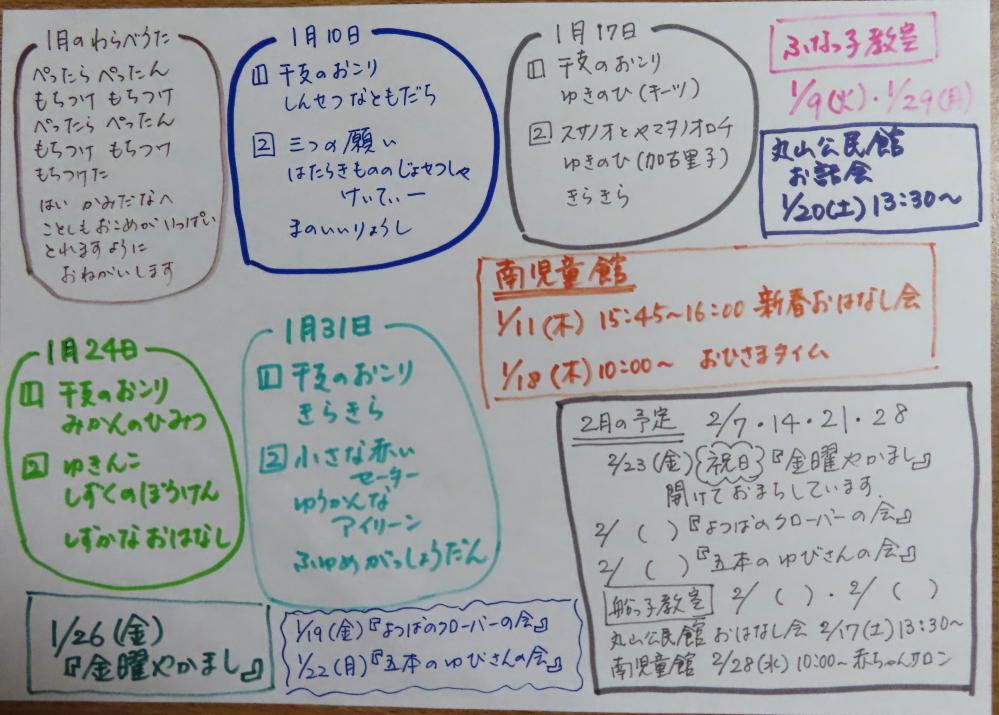 1月のわらべうた
ぺったら ぺったん
もちつけ もちつけ
ぺったら ぺったん
もちつけ もちつけ
もちつけた
はい かみだなへ
ことしも おこめが いっぱい
とれますように
おねがいします
1月10日
1 干支のおこり
しんせつなともだち
2 三つの願い
はたらきもののじょせつしゃ
けいてぃー
まのいいりょうし
1月17日
1 干支のおこり
ゆきのひ(キーツ)
2 スサノオとヤマタノオロチ
ゆきのひ(加古里子)
きらきら
ふなっ子教室
1/9(火)・1/29(月)
丸山公民館
お話会
1/20(土)13:30〜
南児童館
1/11(木) 15:45〜16:00 新春おはなし会
1/18(木)10:00〜 おひさまタイム
1月24日
1 干支のおこり
みかんのひみつ
2 ゆきんこ
しずくのぼうけん
しずかなおはなし
1月31日
1 干支のおこり
きらきら
2 小さな赤い
セーター
ゆうかんな
アイリーン
ふゆめがっしょうだん
2月の予定 2/7・14・21・28
2/23(金)祝日『金曜やかまし』
開けておまちしています.
2/ ( )『よつばのクローバーの会』
2/ ( )『五本のゆびさんの会』
船っ子教室 2/ ( )・2/ ( )
丸山公民館 おはなし会 2/17(土)13:30〜
南児童館 2/28(水)10:00〜赤ちゃんサロン
1/26(金)
『金曜やかまし』
1/19(金)『よつばのクローバーの会』
1/22(月)『五本のゆびさんの会』